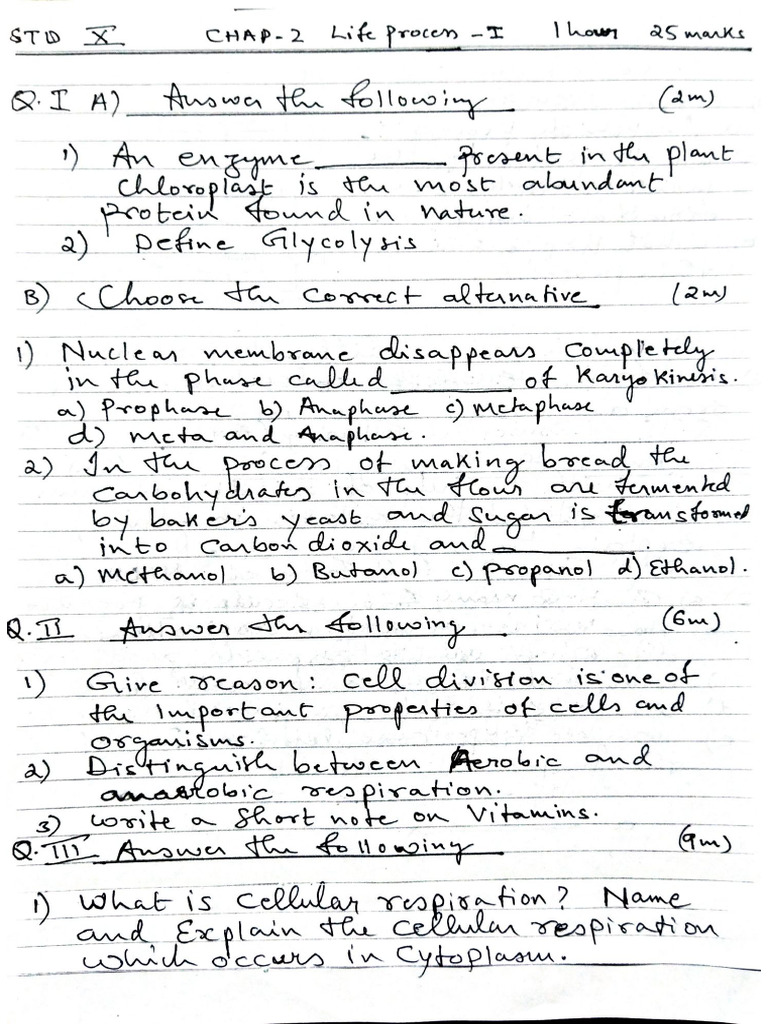 STD X CHAP-2 Life process -I 1 hour 25 marks
Q.I A) Answer the following (2m)
1) An enzyme ________ present in the plant
chloroplast is the most abundant
protein found in nature.
2) Define Glycolysis
B) Choose the correct alternative (2m)
1) Nuclear membrane disappears completely
in the phase called ________ of Karyokinesis.
a) Prophase b) Anaphase c) metaphase
d) meta and Anaphase.
2) In the process of making bread the
carbohydrates in the flour are fermented
by baker's yeast and sugar is transformed
into carbon dioxide and ________.
a) Methanol b) Butanol c) propanol d) Ethanol.
Q.II Answer the following (6m)
1) Give reason: cell division is one of
the important properties of cells and
organisms.
2) Distinguish between Aerobic and
anaerobic respiration.
3) write a short note on Vitamins.
Q.III Answer the following (9m)
1) What is cellular respiration? Name
and Explain the cellular respiration
which occurs in Cytoplasm.